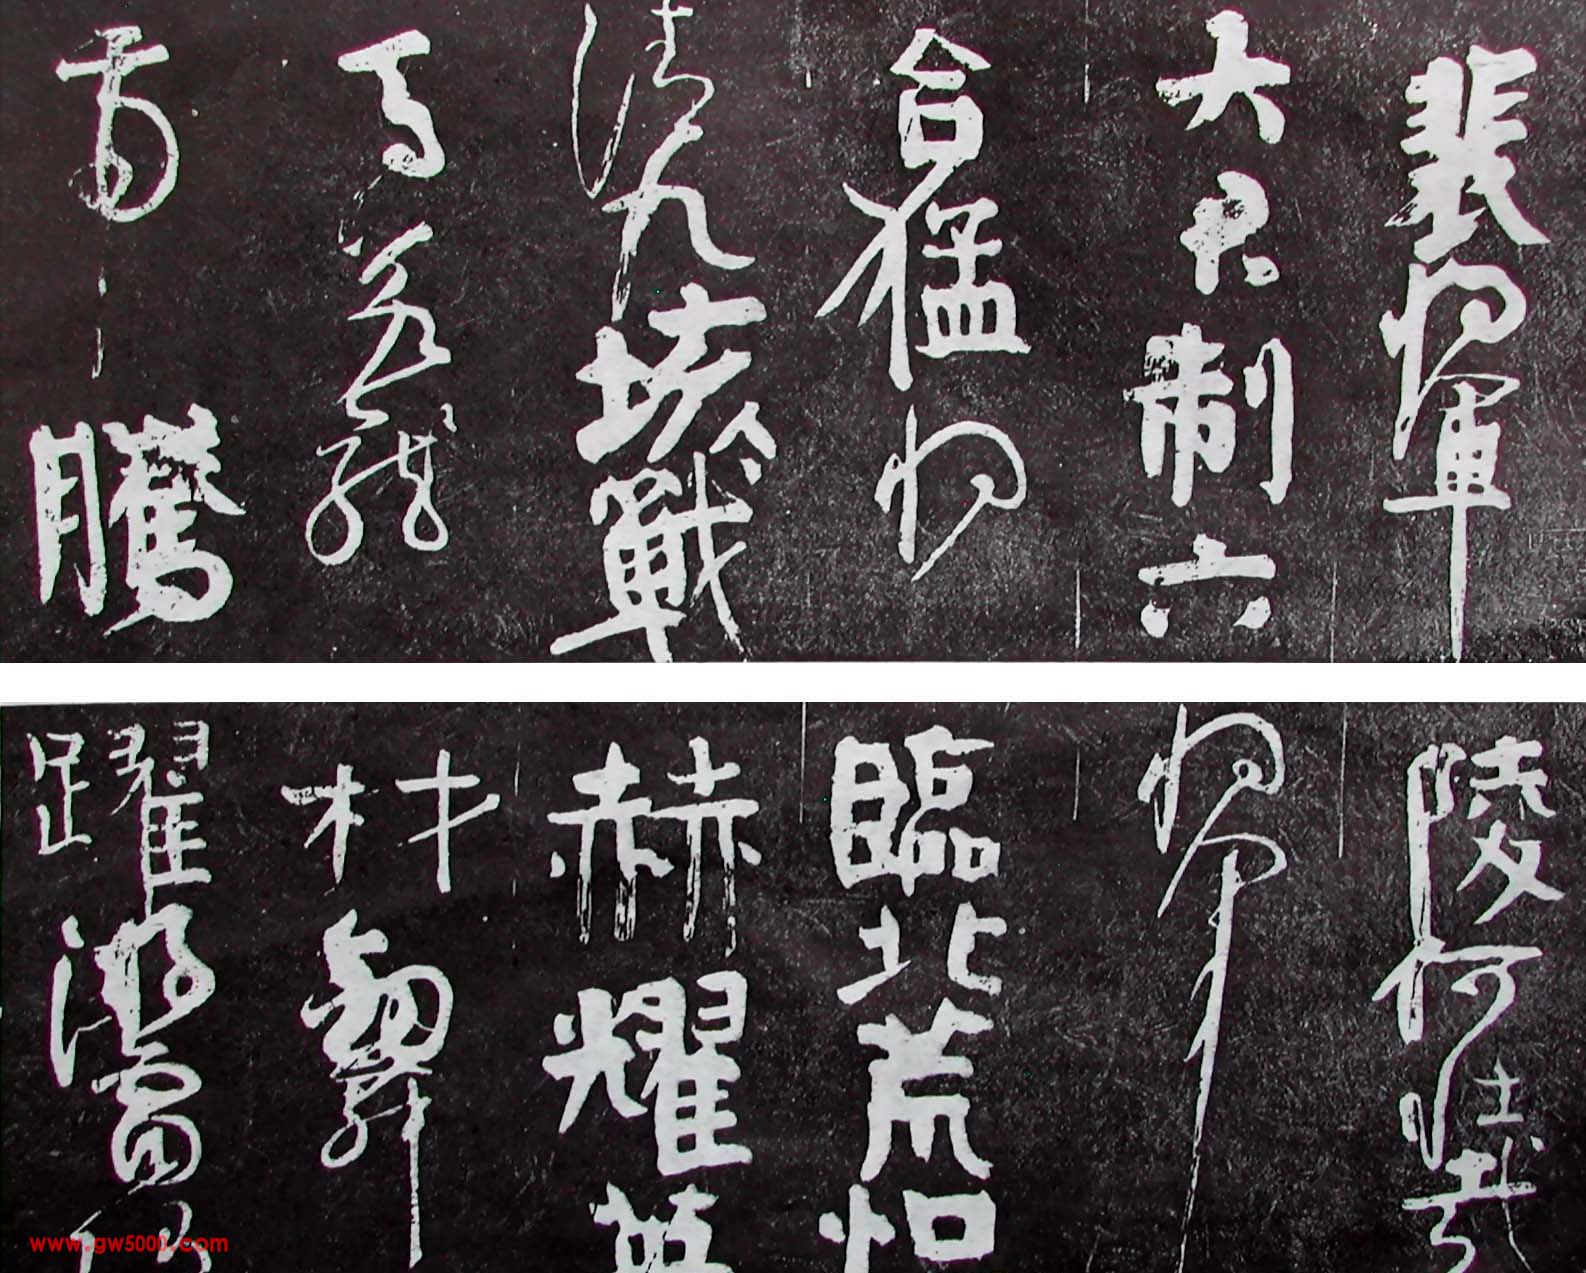 裴將軍
大君制六
合猛將
清九垓戰
馬若龍
虎騰
陵何壯哉
將軍
臨北荒烜
赫耀英
材劍舞
躍游雷
www.gw5000.com